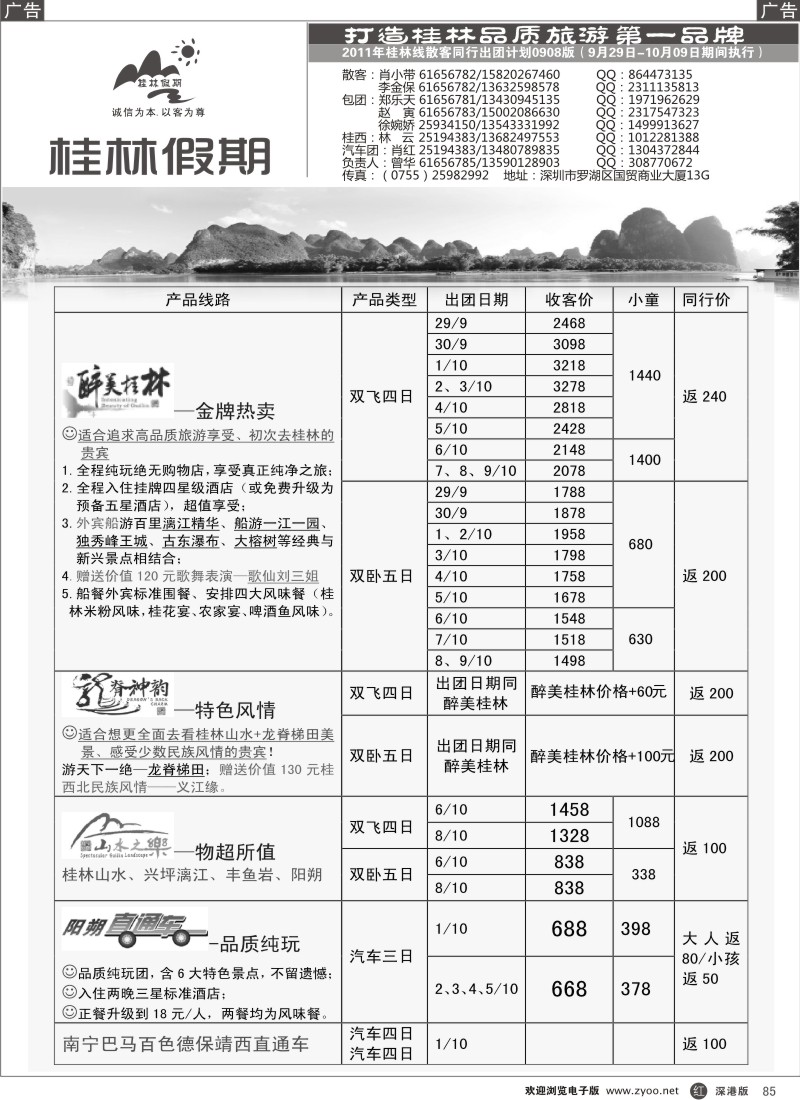 广告
广告
桂林假期
诚信为本,以客为尊
桂林假期
打造桂林品质旅游第一品牌
2011年桂林线散客同行出团计划0908版（9月29日-10月09日期间执行）
散客：肖小带 61656782/15820267460 QQ：864473135
李金保 61656782/13632598578 QQ：2311135813
包团：郑乐天 61656781/13430945135 QQ：1971962629
赵 寅 61656783/15002086630 QQ：2317547323
徐婉娇 25934150/13543331992 QQ：1499913627
桂西：林 云 25194383/13682497553 QQ：1012281388
汽车团：肖红 25194383/13480789835 QQ：1304372844
负责人：曾华 61656785/13590128903 QQ：308770672
传真：（0755）25982992 地址：深圳市罗湖区国贸商业大厦13G
产品线路 产品类型 出团日期 收客价 小童 同行价
醉美桂林
Intoxicating
Beauty of Guilin
—金牌热卖
适合追求高品质旅游享受、初次去桂林的
贵宾
1. 全程纯玩绝无购物店,享受真正纯净之旅;
2. 全程入住挂牌四星级酒店（或免费升级为
预备五星酒店），超值享受;
3. 外宾船游百里漓江精华、船游一江一园、
独秀峰王城、古东瀑布、大榕树等经典与
新兴景点相结合;
4. 赠送价值 120 元歌舞表演—歌仙刘三姐
5. 船餐外宾标准围餐、安排四大风味餐（桂
林米粉风味,桂花宴、农家宴、啤酒鱼风味）。
双飞四日
29/9 2468
30/9 3098
1/10 3218
2、3/10 3278
4/10 2818
5/10 2428
1440
6/10 2148
7、8、9/10 2078
1400
返 240
双卧五日
29/9 1788
30/9 1878
1、2/10 1958
3/10 1798
4/10 1758
5/10 1678
680
6/10 1548
7/10 1518
8、9/10 1498
630
返 200
龙脊神韵
DRAGON'S BACK
CHARM
—特色风情
适合想更全面去看桂林山水+龙脊梯田美
景、感受少数民族风情的贵宾！
游天下一绝—龙脊梯田；赠送价值 130 元桂
西北民族风情——义江缘。
双飞四日 出团日期同
醉美桂林 醉美桂林价格+60元 返 200
双卧五日 出团日期同
醉美桂林 醉美桂林价格+100元 返 200
山水之乐
Spectacular Guilin Landscape
—物超所值
桂林山水、兴坪漓江、丰鱼岩、阳朔
双飞四日
6/10 1458
8/10 1328
1088
双卧五日
6/10 838
8/10 838
338
返 100
阳朔直通车
-品质纯玩
品质纯玩团，含 6 大特色景点，不留遗憾;
入住两晚三星标准酒店;
正餐升级到 18 元/人，两餐均为风味餐。
汽车三日
1/10 688 398
2、3、4、5/10 668 378
大人返
80/小孩
返 50
南宁巴马百色德保靖西直通车
汽车四日
汽车四日
1/10
返 100
欢迎浏览电子版 www.zyoo.net 红 深港版 85